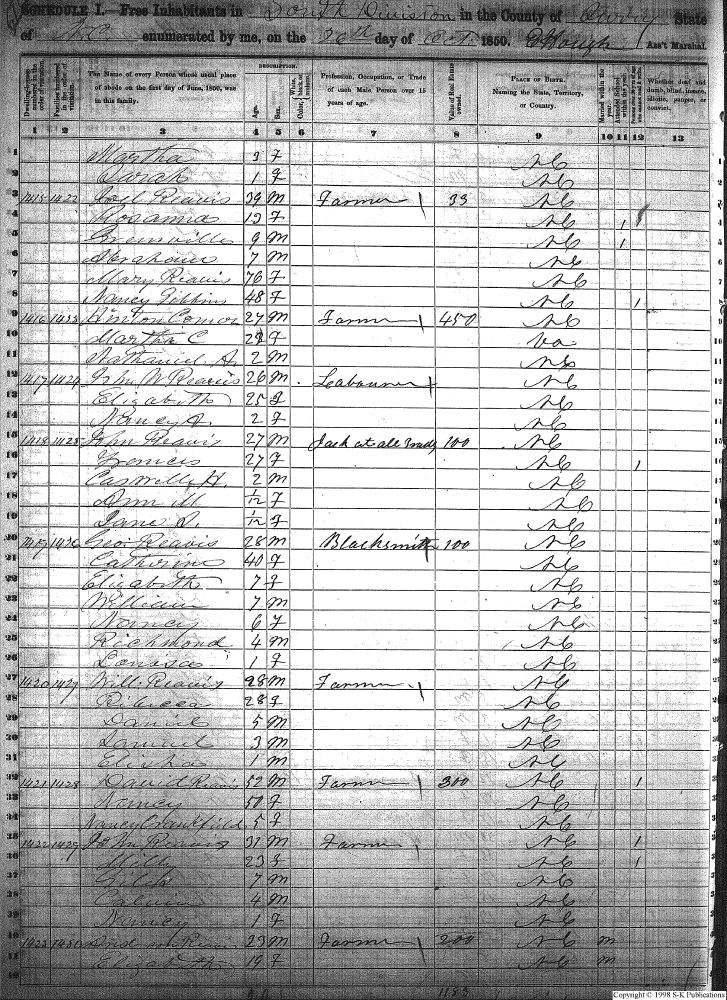 SCHEDULE I.—Free Inhabitants in South Division in the County of Surry State
of N.C. enumerated by me, on the 26th day of Oct 1850. Ass't Marshal.
DESCRIPTION.
The Name of every Person whose usual place of abode on the first day of June, 1850, was in this family.
Age. Sex.
Profession, Occupation, or Trade of each Male Person over 15 years of age.
Value of Real Estate owned.
PLACE OF BIRTH. Naming the State, Territory, or Country.
Whether deaf and dumb, blind, insane, idiotic, pauper, or convict.
1 2 3 4 5 6 7 8 9 10 11 12 13
1 Martha 3 F NC
2 Sarah 1 F NC
3 1415 1422 Joel Reavis 39 M Farmer 33 NC
4 Rosanna 12 F NC 1
5 Greenville 9 M NC 1
6 Abraham 7 M NC
7 Mary Reavis 76 F NC
8 Nancy Gibbins 48 F NC 1
9 1416 1423 Hinton Comer 27 M Farmer 450 NC
10 Martha C F Va
11 Nathaniel A. 2 M NC
12 1417 1424 John W Reavis 26 M Leabourer NC
13 Elizabeth 25 F NC
14 Nancy 2 F NC
15 1418 1425 John Reavis 27 M Jack at all Trads 100 NC
16 Frances 27 F NC 1
17 Caswell H. 2 M NC
18 Ann M 1/12 F NC
19 Jane S. 1/12 F NC
20 1419 1426 Geo. Reavis 28 M Blacksmith 100 NC
21 Catherine 40 F NC
22 Elizabeth 7 F NC
23 William 7 M NC
24 Nancy 6 F NC
25 Richmond 4 M NC
26 1 F NC
27 1420 1427 Will. Reavis 28 M Farmer NC
28 Rebecca 28 F NC
29 Daniel 5 M NC
30 Samuel 3 M NC
31 Elisha 1 M NC
32 1421 1428 David Reavis 52 M Farmer 300 NC 1
33 Nancy 50 F NC
34 Nancy Crankfield 5 F NC
35 1422 1429 John Reavis 31 M Farmer NC 1
36 Milly 23 F NC 1
37 Giles 7 M NC
38 Calvin 4 M NC
39 Nancy 1 F NC
40 1423 1430 Reavis 23 M Farmer 200 NC M
41 Elizabeth 19 F NC M
42 1183
Copyright © 1998 S-K Publications